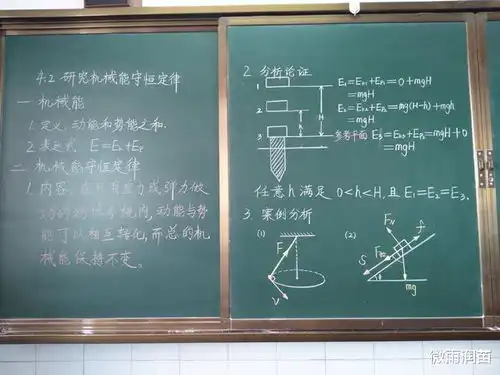 4.2 研究机械能守恒定律
一 机械能
1. 定义: 动能和势能之和.
2. 表达式 E=Eₖ+Eₚ
二 机械能守恒定律
1. 内容: 在只有重力或弹力做
功的物体系统内, 动能与势
能可以相互转化, 而总的机
械能保持不变。
2. 分析论证
1
2
3
h
H
E₁=Eₖ₁+Eₚ₁=0+mgH
=mgH
E₂=Eₖ₂+Eₚ₂=mg(H-h)+mgh
=mgH
参考平面 E₃=Eₖ₃+Eₚ₃=mgH+0
=mgH
任意h满足 0<h<H, 且 E₁=E₂=E₃.
3. 案例分析
(1)
F
v
(2)
F_N
f
S
mg
微雨润苗